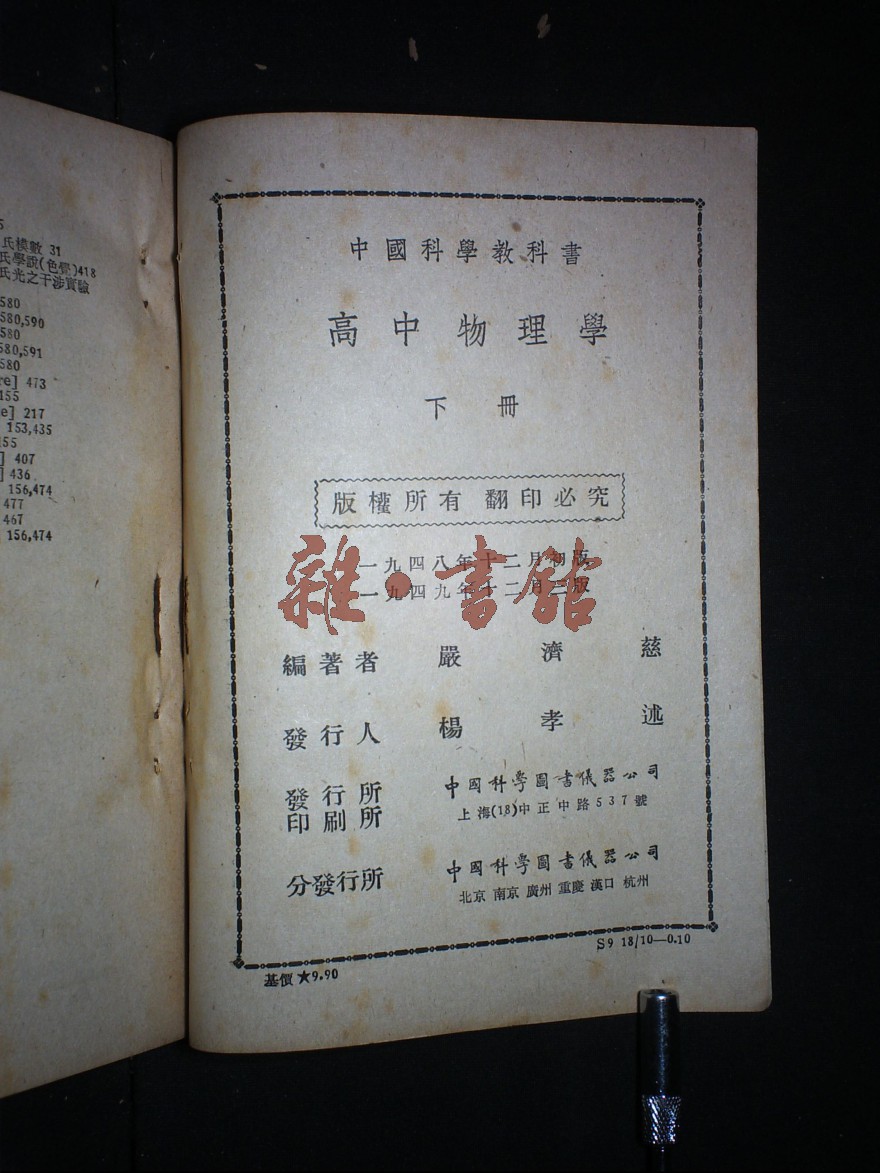 5
氏模數 31
氏學說(色覺)418
氏光之干涉實驗
580
580,590
580
580,591
580
re] 473
155
e] 217
153,435
55
] 407
] 436
156,474
477
467
156,474
中國科學教科書
高中物理學
下冊
版權所有 翻印必究
一九四八年十二月初版
一九四九年十二月三版
雜·書館
編著者 嚴濟慈
發行人 楊孝述
發行所
印刷所
中國科學圖書儀器公司
上海(18)中正中路537號
分發行所 中國科學圖書儀器公司
北京 南京 廣州 重慶 漢口 杭州
基價★9.90
S9 18/10—0.10